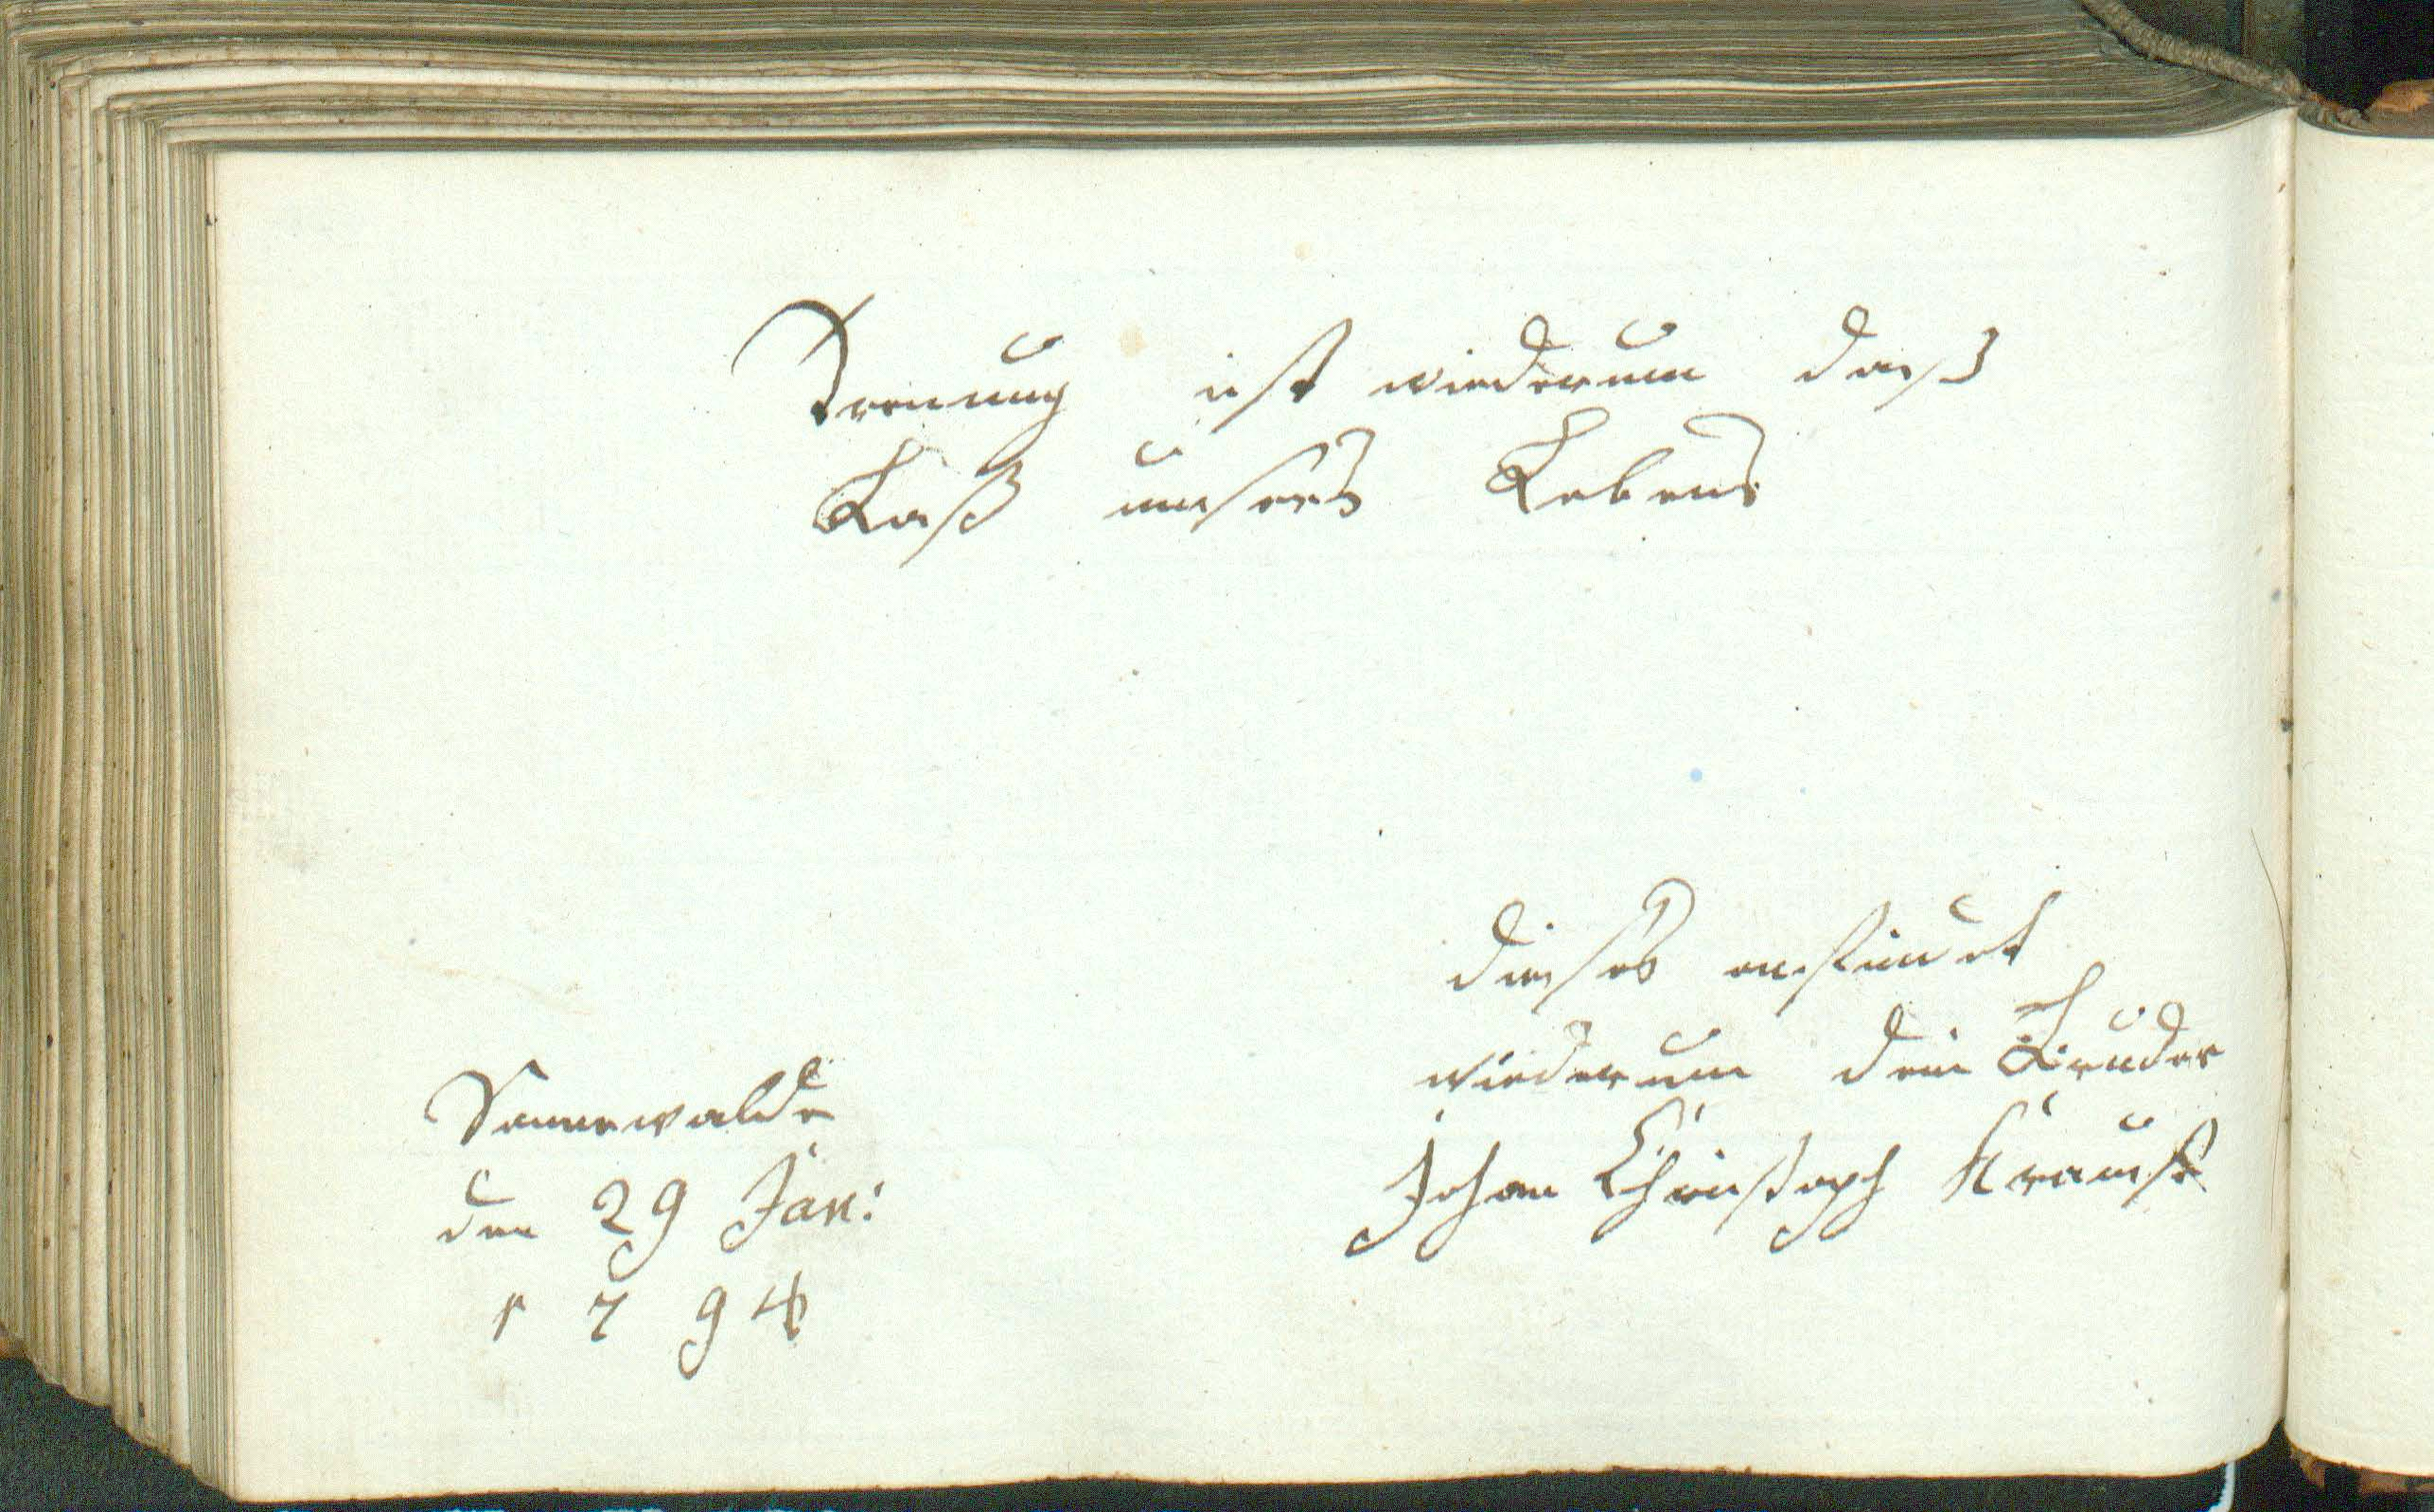 Trenung ist wiederum daß
Laß unsers Lebens
Dieses erinnert
wiederum dein Bruder
Johan Christoph Krauß
Sonnewalde
den 29 Jan:
1794